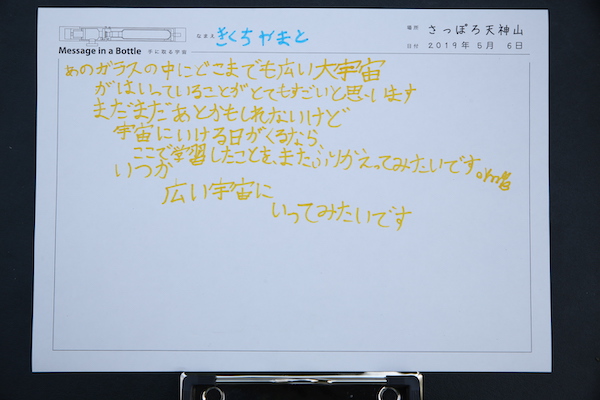 Message in a Bottle 手に取る宇宙
なまえ きくちやまと
場所 さっぽろ天神山
日付 2019年 5月 6日
あのガラスの中にどこまでも広い大宇宙
がはいっていることがとてもすごいと思います
まだまだあとかもしれないけど
宇宙にいける日がくるなら、
ここで学習したことを、またふりかえってみたいです。
いつか
広い宇宙に
いってみたいです